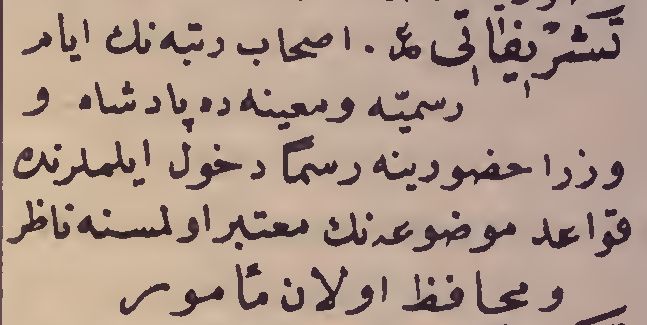 تشریفاتی ع. اصحاب رتبه‌نك ایام
رسمیّه و معینه‌ده پادشاه و
وزرا حضورینه رسماً دخول ایلملرنده
قواعد موضوعه‌نك معتبر اولمسنه ناظر
و محافظ اولان مأمور